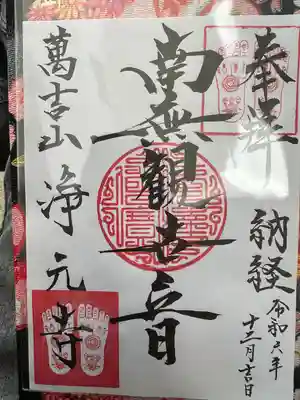 奉拝 納経
令和六年
十二月吉日
南無観世音
萬吉山 浄元寺